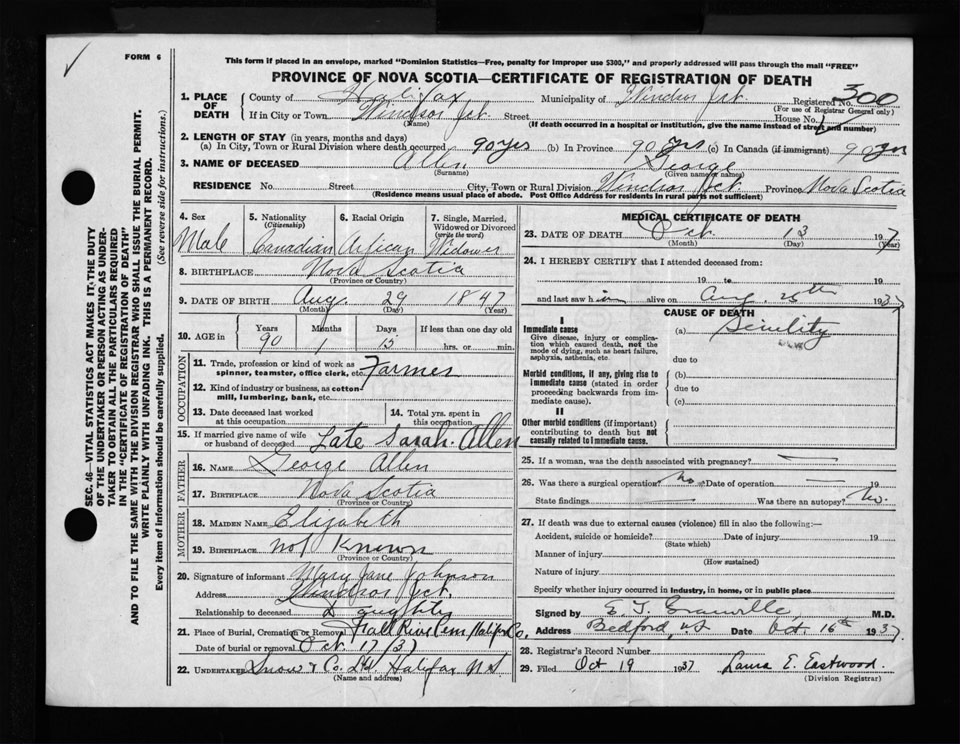 FORM 6
This form if placed in an envelope, marked "Dominion Statistics—Free, penalty for improper use $300," and properly addressed will pass through the mail "FREE"
PROVINCE OF NOVA SCOTIA—CERTIFICATE OF REGISTRATION OF DEATH
SEC. 46—VITAL STATISTICS ACT MAKES IT THE DUTY
OF THE UNDERTAKER OR PERSON ACTING AS UNDER-
TAKER TO OBTAIN ALL THE PARTICULARS REQUIRED
IN THE "CERTIFICATE OF REGISTRATION OF DEATH"
AND TO FILE THE SAME WITH THE DIVISION REGISTRAR WHO SHALL ISSUE THE BURIAL PERMIT.
WRITE PLAINLY WITH UNFADING INK. THIS IS A PERMANENT RECORD.
Every item of information should be carefully supplied. (See reverse side for instructions.)
1. PLACE OF DEATH
County of Halifax Municipality of Windsor Jct. Registered No. 300
(For use of Registrar General only)
If in City or Town Windsor Jct. Street House No.
(Name) (If death occurred in a hospital or institution, give the name instead of street and number)
2. LENGTH OF STAY (in years, months and days)
(a) In City, Town or Rural Division where death occurred 90 yrs (b) In Province 90 yrs (c) In Canada (if immigrant) 90 yrs
3. NAME OF DECEASED Allen George
(Surname) (Given name or names)
RESIDENCE No. Street City, Town or Rural Division Windsor Jct. Province Nova Scotia
(Residence means usual place of abode. Post Office Address for residents in rural parts not sufficient)
4. Sex 5. Nationality 6. Racial Origin 7. Single, Married,
(Citizenship) Widowed or Divorced
(write the word)
Male Canadian African Widower
8. BIRTHPLACE Nova Scotia
(Province or Country)
9. DATE OF BIRTH Aug. 29 1847
(Month) (Day) (Year)
10. AGE in Years Months Days If less than one day old
90 1 15 hrs. or min.
OCCUPATION
11. Trade, profession or kind of work as
spinner, teamster, office clerk, etc. Farmer
12. Kind of industry or business, as cotton-
mill, lumbering, bank, etc.
13. Date deceased last worked 14. Total yrs. spent in
at this occupation this occupation
15. If married give name of wife
or husband of deceased Late Sarah Allen
FATHER
16. NAME George Allen
17. BIRTHPLACE Nova Scotia
(Province or Country)
MOTHER
18. MAIDEN NAME Elizabeth
19. BIRTHPLACE not known
(Province or Country)
20. Signature of informant Mary Jane Johnson
Address Windsor Jct.
Relationship to deceased Daughter
21. Place of Burial, Cremation or Removal Fall River Cem. Halifax Co.
Date of burial or removal Oct. 17/37
22. UNDERTAKER Snow & Co. Ltd. Halifax N S
(Name and address)
MEDICAL CERTIFICATE OF DEATH
23. DATE OF DEATH Oct. 13 1937
(Month) (Day) (Year)
24. I HEREBY CERTIFY that I attended deceased from:
19 to 19
and last saw him alive on Aug. 25th 1937
CAUSE OF DEATH
I
Immediate cause (a) Senility
Give disease, injury or complica-
tion which caused death, not the
mode of dying, such as heart failure,
asphyxia, asthenia, etc.
due to
Morbid conditions, if any, giving rise to (b)
immediate cause (stated in order due to
proceeding backwards from im-
mediate cause). (c)
II
Other morbid conditions (if important)
contributing to death but not
causally related to immediate cause.
25. If a woman, was the death associated with pregnancy?
26. Was there a surgical operation? No Date of operation 19
State findings Was there an autopsy? No.
27. If death was due to external causes (violence) fill in also the following:—
Accident, suicide or homicide? Date of injury 19
(State which)
Manner of injury
(How sustained)
Nature of injury
Specify whether injury occurred in industry, in home, or in public place
Signed by E. T. Granville M.D.
Address Bedford, N.S. Date Oct. 16th 1937.
28. Registrar's Record Number
29. Filed Oct 19 1937 Laura E. Eastwood.
(Division Registrar)